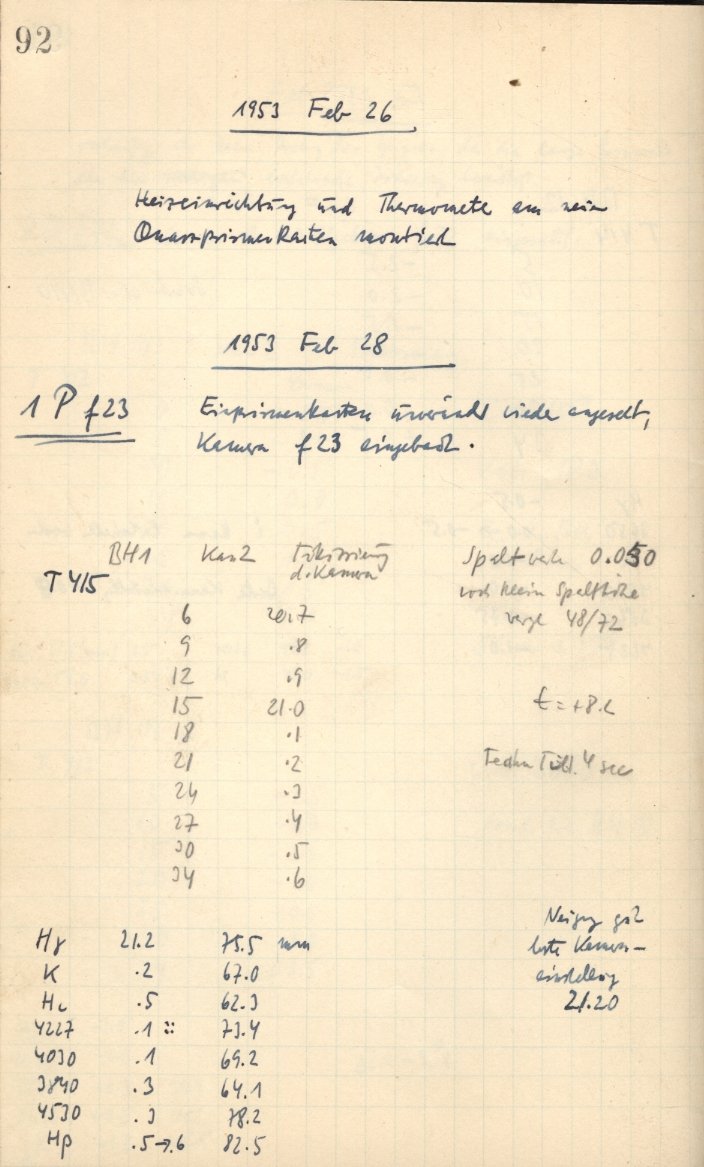 92
1953 Feb 26
Heizeinrichtung und Thermometer am neuen
Quarzprismenkasten montiert
1953 Feb 28
1 P f23
Einprismenkasten unverändert wieder angesetzt,
Kamera f 23 eingebaut.
BH1 Kas2 Fokussierung Spaltweite 0.050
d. Kamera
T 415 Spalthöhe
6 20.7 vergl 48/72
9 .8
12 .9
15 21.0 t = +8.2
18 .1
21 .2 4 sec
24 .3
27 .4
30 .5
34 .6
Neigung gut
Hγ 21.2 75.5 mm beste Kamera-
K .2 67.0 einstellung
.5 62.3 21.20
4227 .1 :: 73.4
4030 .1 69.2
3840 .3 64.1
4530 .3 78.2
Hβ .5→.6 82.5